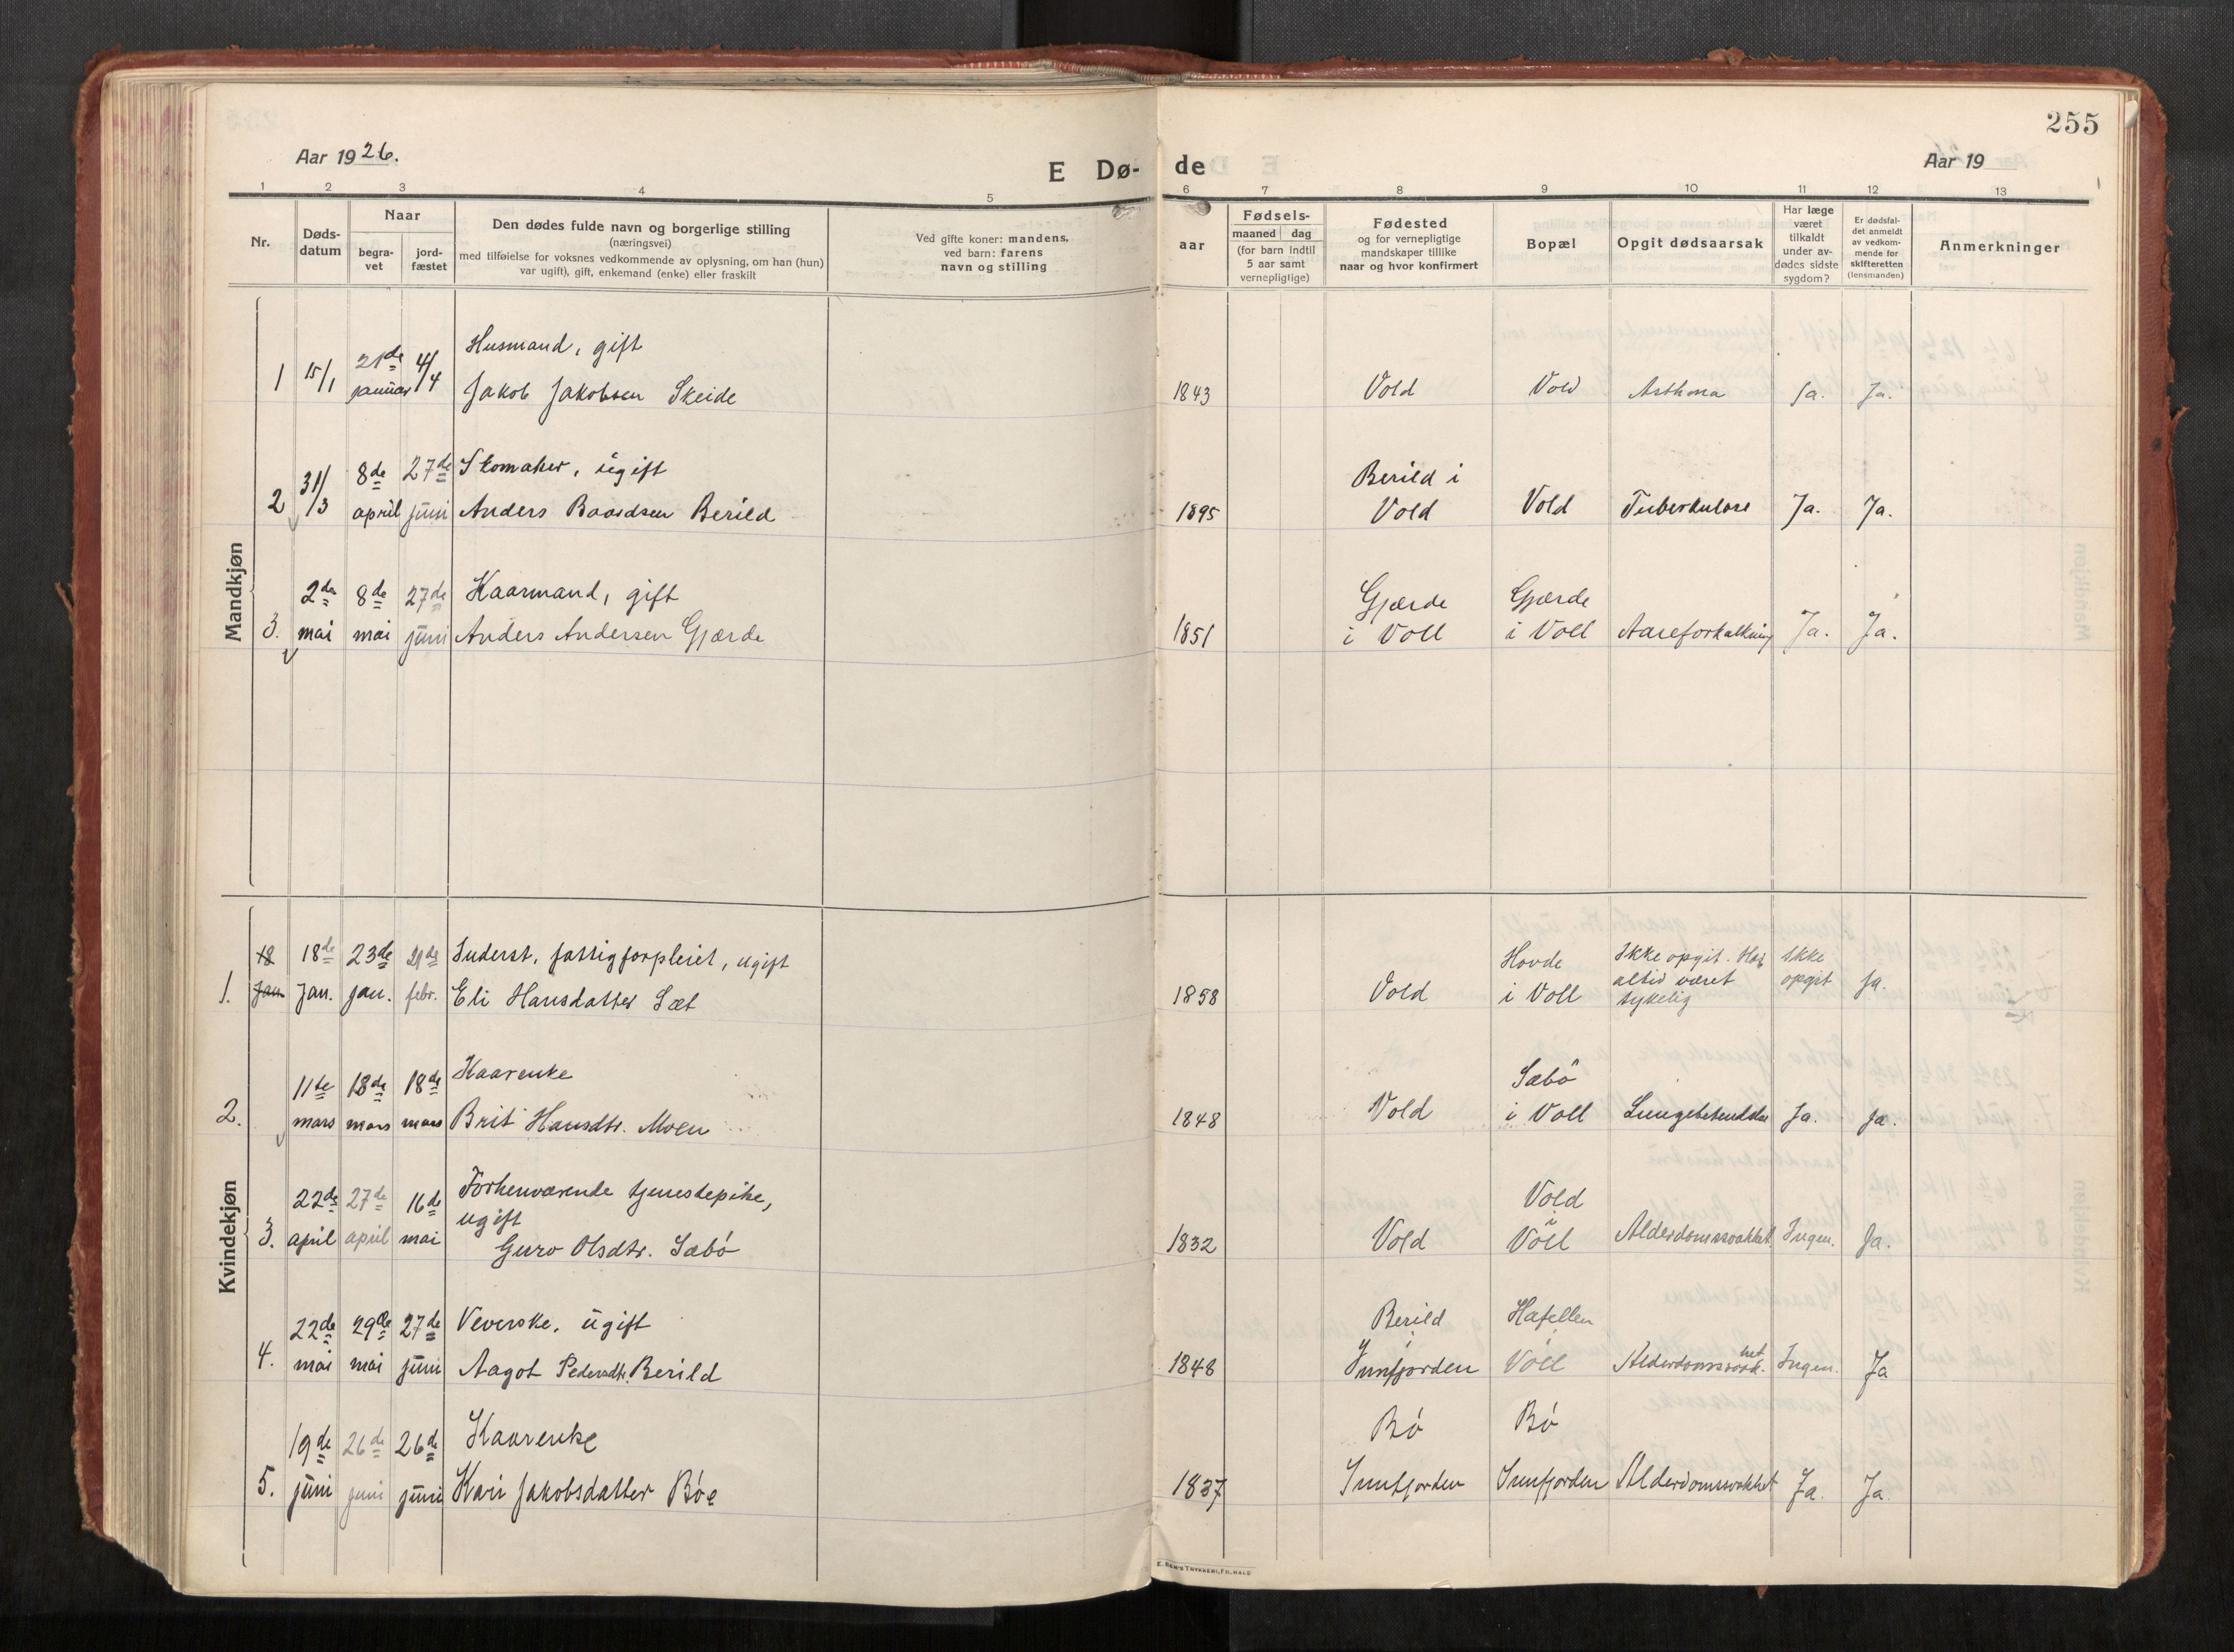 255
Aar 1926.
E Dø- de
Aar 19
1 2 3 4 5 6 7 8 9 10 11 12 13
Nr.
Døds-
datum
Naar
begra-
vet
jord-
fæstet
Den dødes fulde navn og borgerlige stilling
(næringsvei)
med tilføielse for voksnes vedkommende av oplysning, om han (hun)
var ugift), gift, enkemand (enke) eller fraskilt
Ved gifte koner: mandens,
ved barn: farens
navn og stilling
aar
Fødsels-
maaned dag
(for barn indtil
5 aar samt
vernepligtige)
Fødested
og for vernepligtige
mandskaper tillike
naar og hvor konfirmert
Bopæl
Opgit dødsaarsak
Har læge
været
tilkaldt
under av-
dødes sidste
sygdom?
Er dødsfal-
det anmeldt
av vedkom-
mende for
skifteretten
(lensmanden)
Anmerkninger
Mandkjøn
Husmand, gift
1 15/1 21de januar 4/4 Jakob Jakobsen Skeide 1843 Vold Vold Asthma Ja. Ja.
8de 27de Skomaker, ugift Berild i
2 31/3 april juni Anders Baardsen Berild 1895 Vold Vold Tuberkulose Ja. Ja.
2den 8de 27de Kaarmand, gift Gjærde Gjærde
3. mai mai juni Anders Andersen Gjærde 1851 i Voll i Voll Aareforkalkning Ja. Ja.
Kvindekjøn
18 18de 23de 21de Inderst, fattigforpleiet, ugift Hovde Ikke opgit. Har Ikke
1. Jan. Jan. jan. febr. Eli Hansdatter Sæt 1858 Vold i Voll altid været opgit Ja.
sykelig
11te 18de 18de Kaarenke Sæbö
2. mars mars mars Brit Hansdtr. Moen 1848 Vold i Voll Lungebetendelse Ja. Ja.
22de 27de 16de Forhenværende tjenestepike, Vold
ugift i
3. april april mai Guro Olsdtr. Sæbö 1832 Vold Voll Alderdomssvakhet. Ingen. Ja.
22de 29de 27de Veverske, ugift Berild Hafellen
i i het
4. mai mai juni Aagot Pedersdtr. Berild 1848 Innfjorden Voll Alderdomssvak. Ingen. Ja
19de 26de 26de Kaarenke Bö Bö
5. juni juni juni Kari Jakobsdatter Böe 1837 Innfjorden Innfjorden Alderdomssvakhet Ja. Ja.
E. SEM'S TRYKKERI, FR.HALD